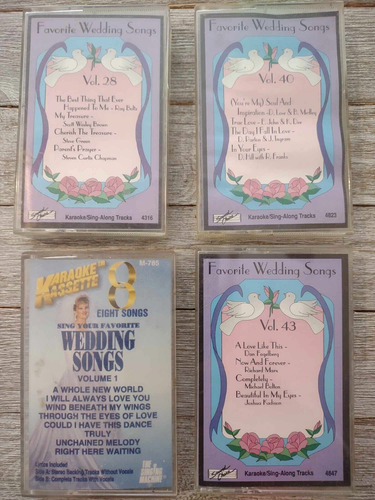 Favorite Wedding Songs
Vol. 28
The Best Thing That Ever
Happened To Me - Ray Boltz
My Treasure -
Scott Wesley Brown
Cherish The Treasure -
Steve Green
Parent's Prayer -
Steven Curtis Chapman
Karaoke/Sing-Along Tracks
4316
Favorite Wedding Songs
Vol. 40
(You're My) Soul And
Inspiration - D. Love & B. Medley
True Love - E. John & K. Dee
The Day I Fall In Love -
D. Parton & J. Ingram
In Your Eyes -
D. Hill with R. Franks
Karaoke/Sing-Along Tracks
4823
KARAOKE
KASSETTE
8
EIGHT SONGS
SING YOUR FAVORITE
WEDDING
SONGS
VOLUME 1
A WHOLE NEW WORLD
I WILL ALWAYS LOVE YOU
WIND BENEATH MY WINGS
THROUGH THE EYES OF LOVE
COULD I HAVE THIS DANCE
TRULY
UNCHAINED MELODY
RIGHT HERE WAITING
Lyrics Included
Side A: Stereo Backing Tracks Without Vocals
Side B: Complete Tracks With Vocals
THE
SINGING
MACHINE
Favorite Wedding Songs
Vol. 43
A Love Like This -
Dan Fogelberg
Now And Forever -
Richard Marx
Completely -
Michael Bolton
Beautiful In My Eyes -
Joshua Kadison
Karaoke/Sing-Along Tracks
4847